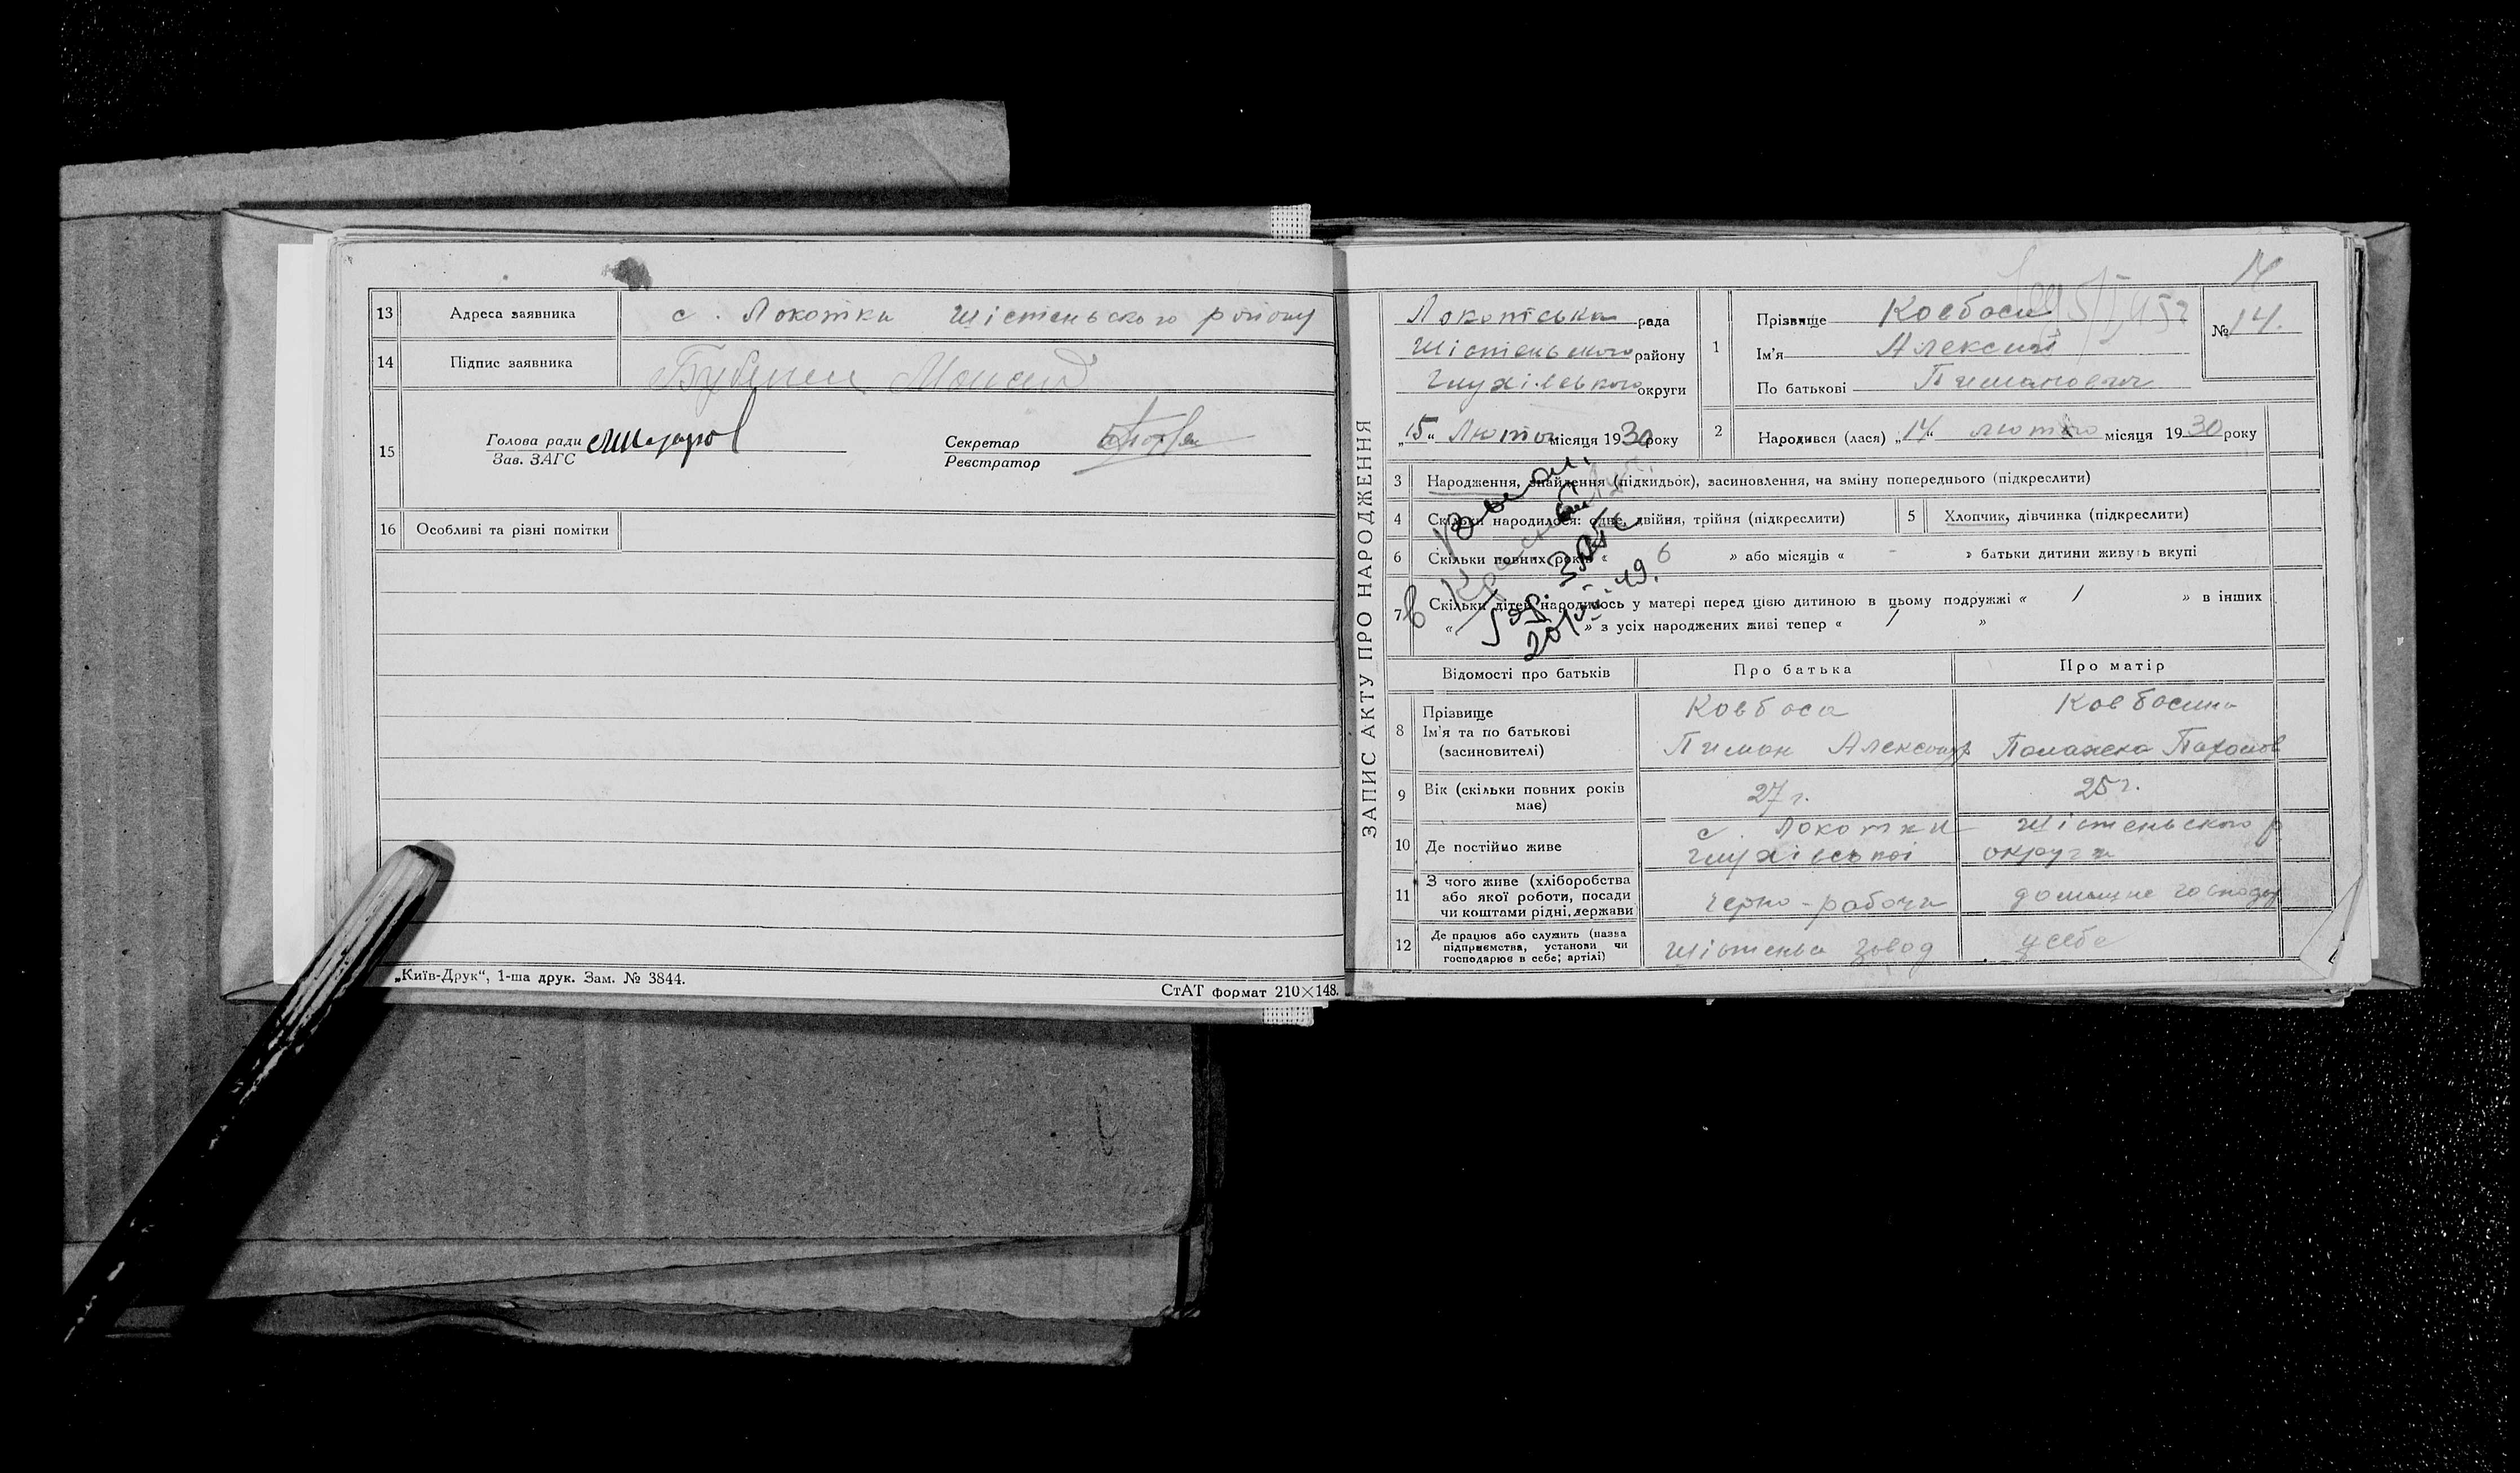 13 Адреса заявника с. Локотки Шістенського району
14 Підпис заявника
15 Голова ради
Зав. ЗАГС
Секретар
Реєстратор
16 Особливі та різні помітки
„Київ-Друк“, 1-ша друк. Зам. № 3844.
СтАТ формат 210×148.
ЗАПИС АКТУ ПРО НАРОДЖЕННЯ
14
Локотська рада
Шістенського району
Глухівського округи
„15“ Лютого місяця 1930 року
1 Прізвище Ковбаса
Ім'я Алексий
По батькові Пиманович
№ 14.
2 Народився (лася) „14“ лютого місяця 1930 року
3 Народження, знайдення (підкидьок), засиновлення, на зміну попереднього (підкреслити)
4 Скільки народилося: одне, двійня, трійня (підкреслити)
5 Хлопчик, дівчинка (підкреслити)
6 Скільки повних років « 6 » або місяців « - » батьки дитини живуть вкупі
7 Скільки дітей народилось у матері перед цією дитиною в цьому подружжі « 1 » в інших
« » з усіх народжених живі тепер « 1 »
Відомості про батьків Про батька Про матір
8 Прізвище
Ім'я та по батькові
(засновителі)
Ковбаса
Пиман Александр
Ковбасина
Пахомов
9 Вік (скільки повних років має)
27 г.
25 г.
10 Де постійно живе
с. Локотки Шістенського р
Глухівської округи
11 З чого живе (хліборобства
або якої роботи, посади
чи коштами рідні, держави
черно-рабочи
домашне господар
12 Де працює або служить (назва
підприємства, установи чи
господарює в себе; артілі)
завод
у себе